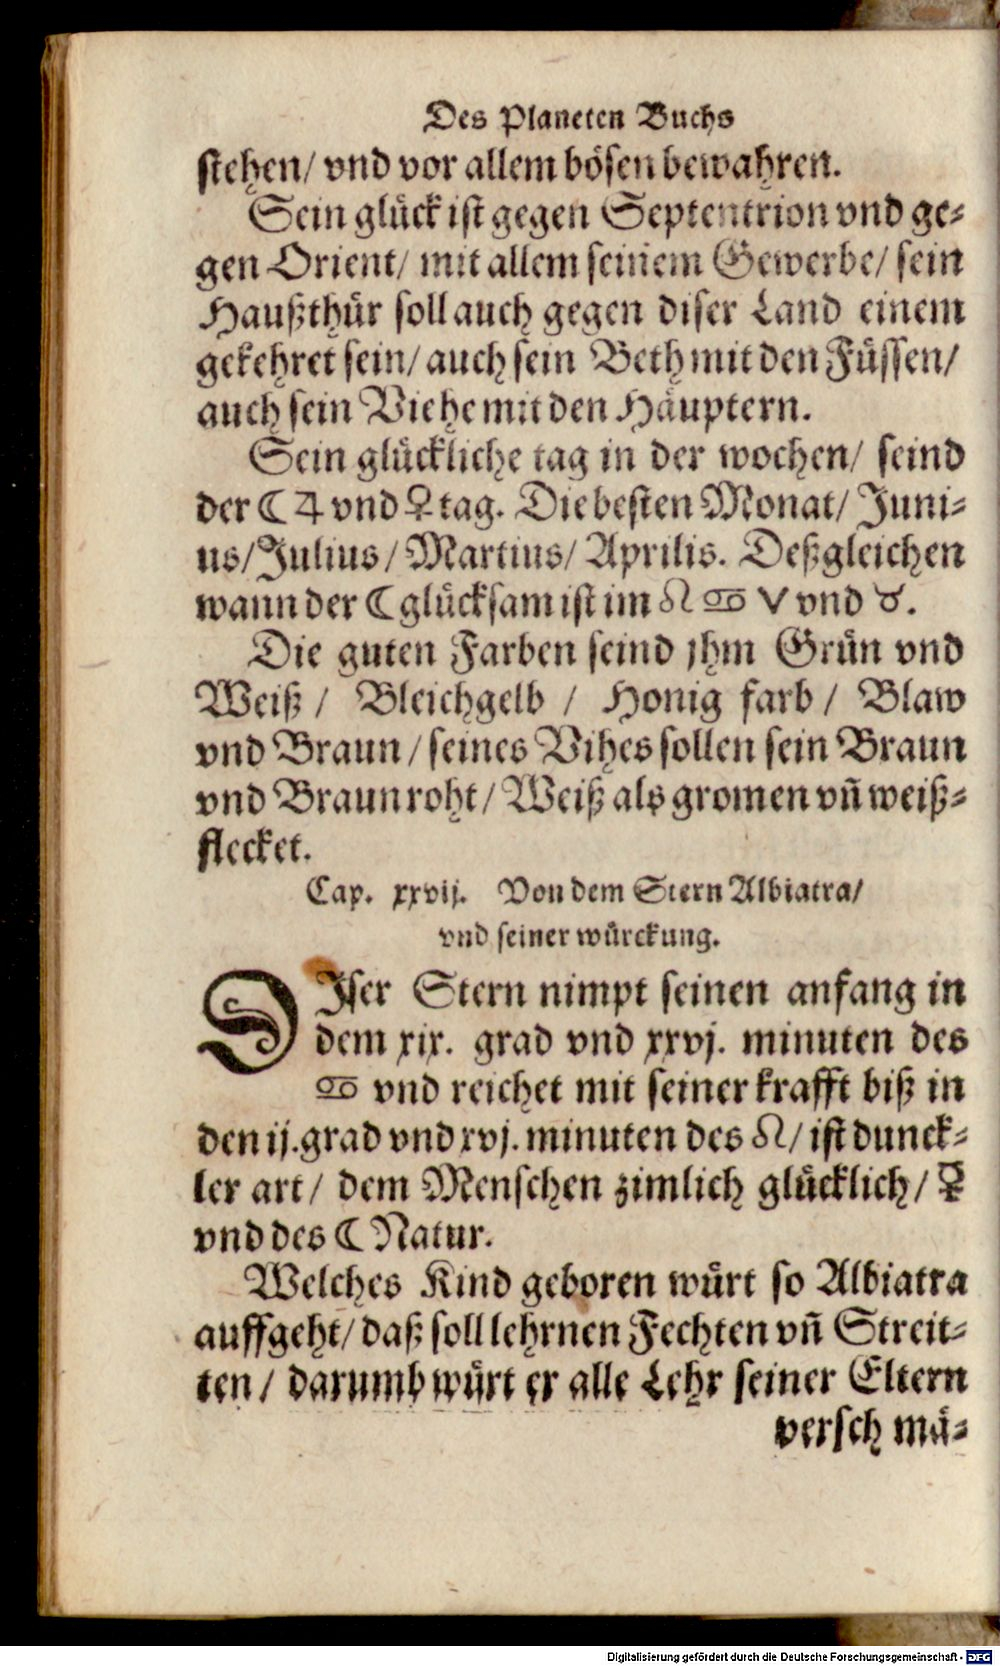 Des Planeten Buchs
stehen/ vnd vor allem bösen bewahren.
Sein glück ist gegen Septentrion vnd ge-
gen Orient/ mit allem seinem Gewerbe/ sein
Haußthür soll auch gegen diser Land einem
gekehret sein/ auch sein Beth mit den Füssen/
auch sein Viehe mit den Häuptern.
Sein glückliche tag in der wochen/ seind
der ☾ ♃ vnd ♀ tag. Die besten Monat/ Juni-
us/ Julius/ Martius/ Aprilis. Deßgleichen
wann der ☾ glücksam ist im ♌ ♋ ♈ vnd ♉.
Die guten Farben seind jhm Grün vnd
Weiß/ Bleichgelb/ Honig farb/ Blaw
vnd Braun/ seines Vihes sollen sein Braun
vnd Braunroht/ Weiß als gromen vñ weiß-
flecket.
Cap. xxvij. Von dem Stern Albiatra/
vnd seiner würckung.
DIser Stern nimpt seinen anfang in
dem xix. grad vnd xxvj. minuten des
♋ vnd reichet mit seiner krafft biß in
den ij. grad vnd xvj. minuten des ♌/ ist dunck-
ler art/ dem Menschen zimlich glücklich/
vnd des ☾ Natur.
Welches Kind geboren würt so Albiatra
auffgeht/ daß soll lehrnen Fechten vñ Streit-
ten/ darumb würt er alle Lehr seiner Eltern
verschmä-
Digitalisierung gefördert durch die Deutsche Forschungsgemeinschaft - DFG